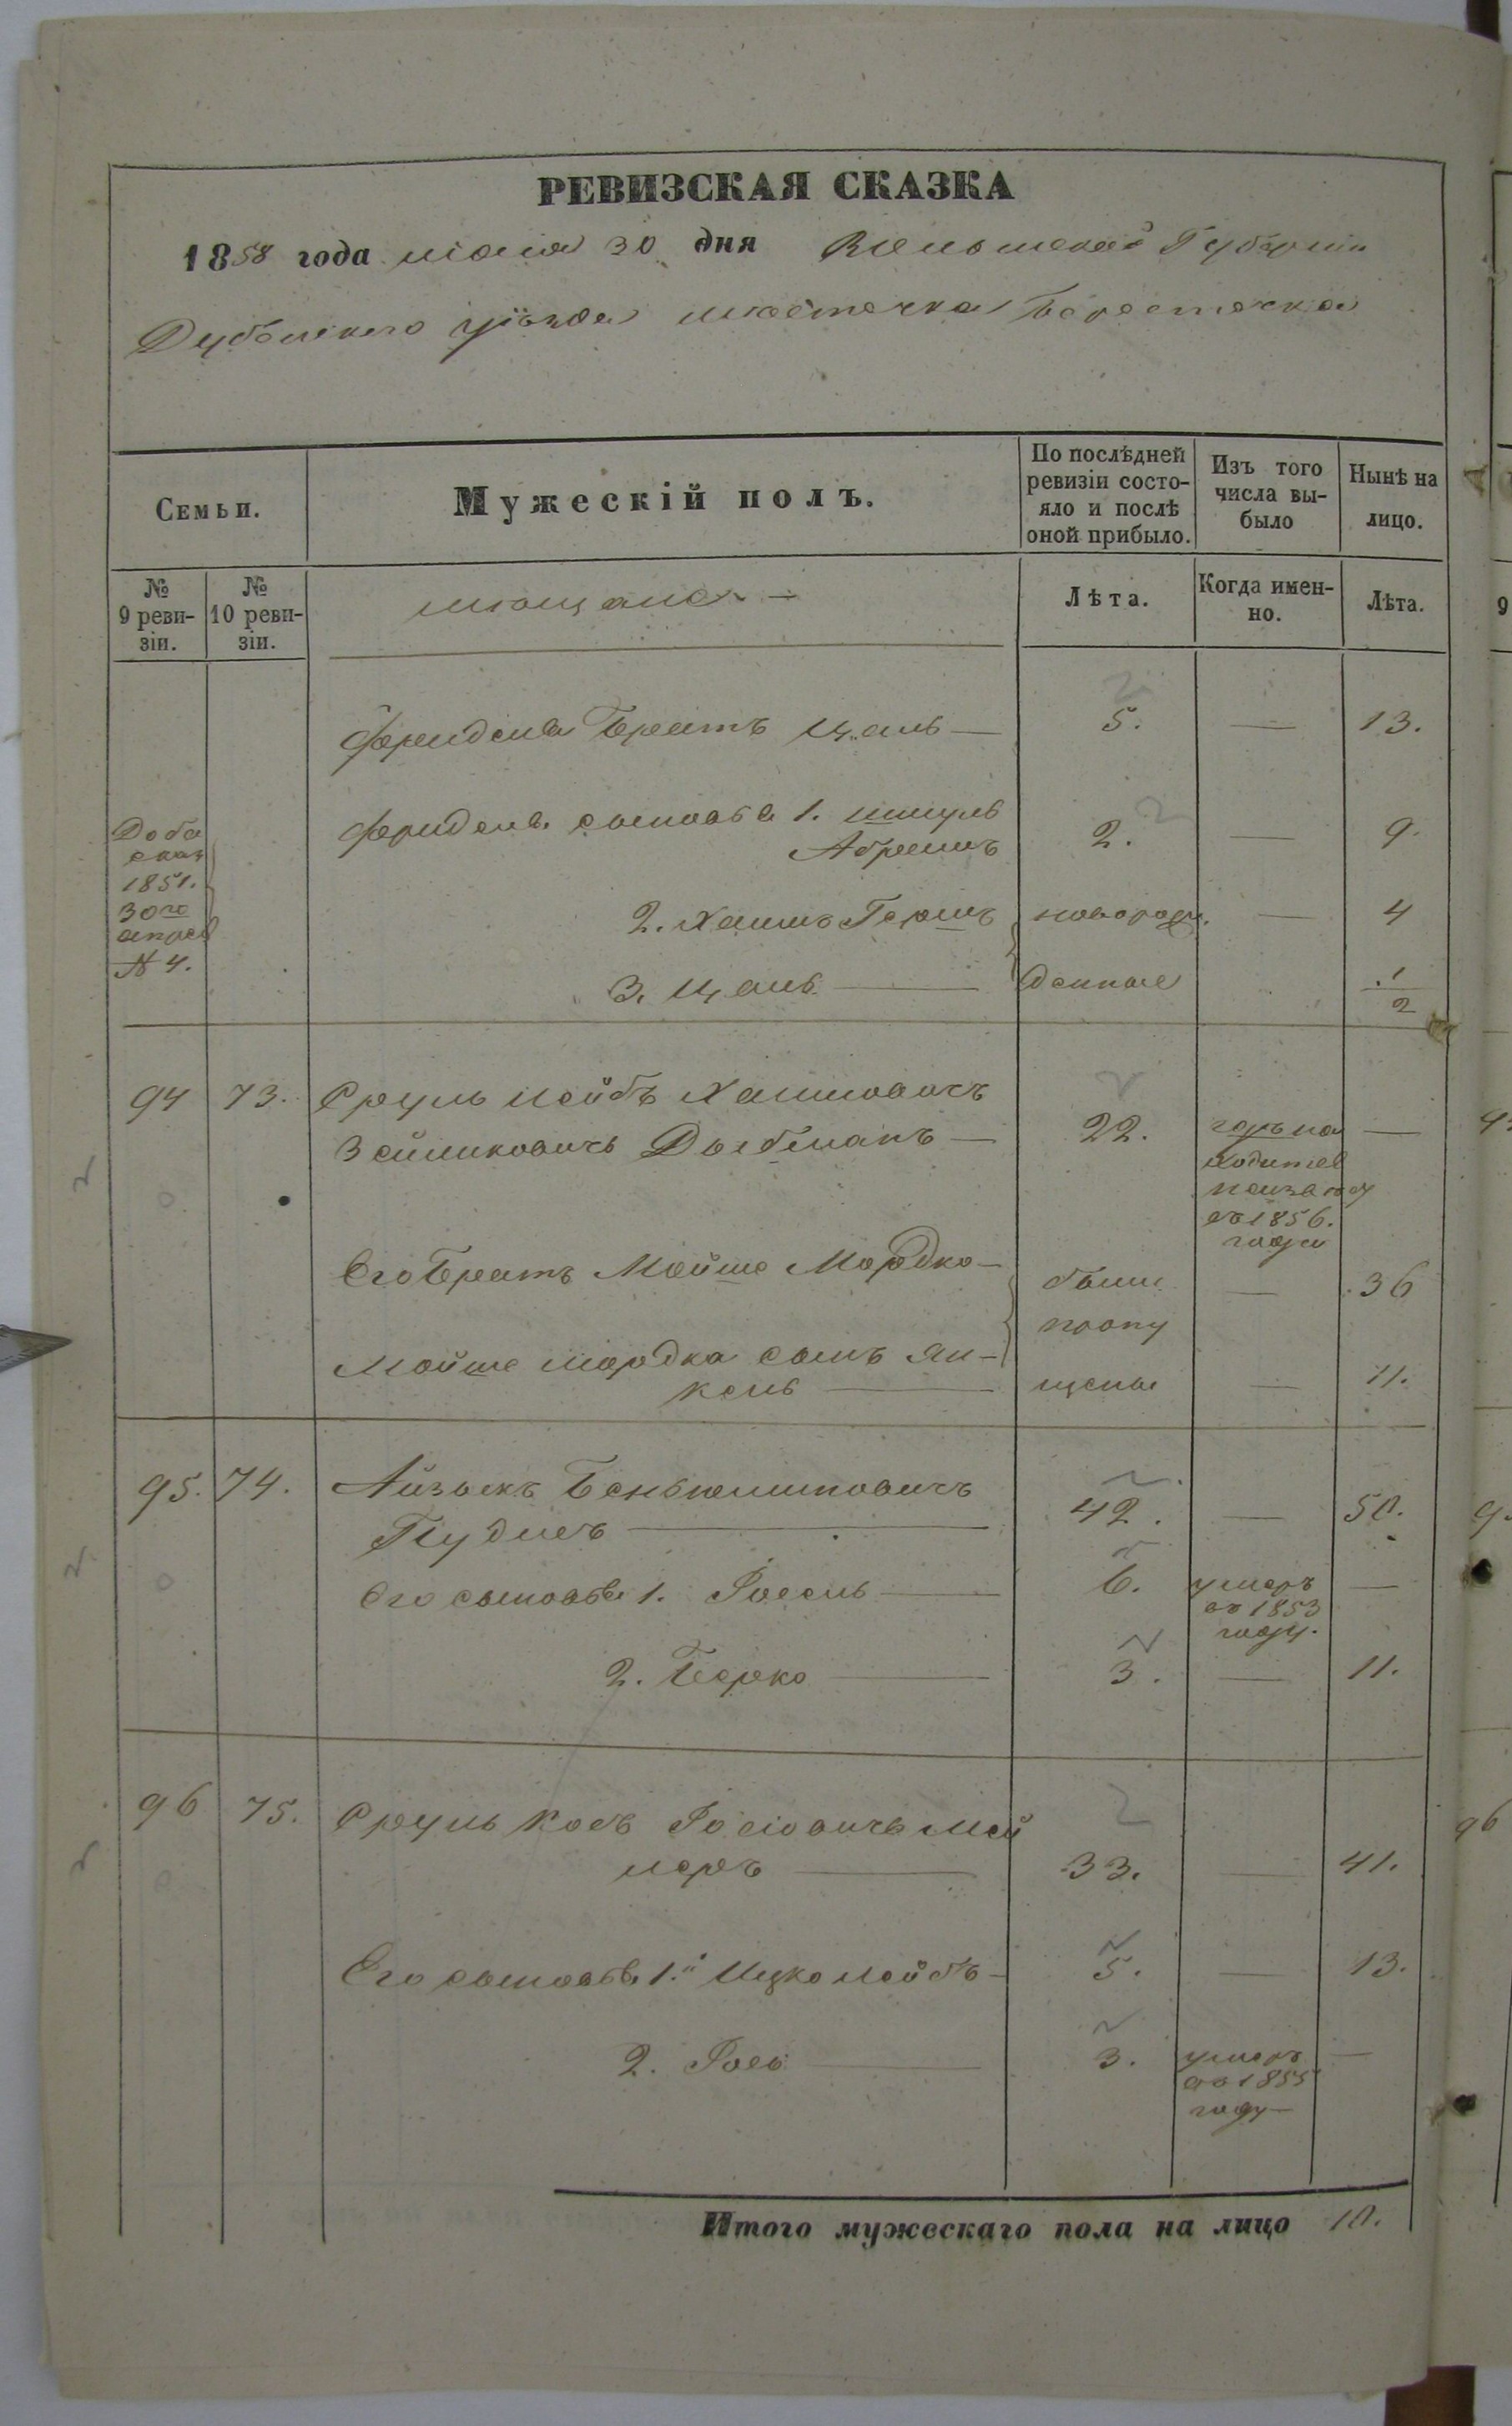 РЕВИЗСКАЯ СКАЗКА
1858 года июня 30 дня Волынской Губернии
Дубенского уѣзда мѣстечка Берестечка
Семьи.
Мужескій полъ.
По послѣдней ревизіи состо-
яло и послѣ
оной прибыло.
Изъ того
числа вы-
было
Нынѣ на
лицо.
№
9 реви-
зіи.
№
10 реви-
зіи.
мѣщане
Лѣта.
Когда имен-
но.
Лѣта.
Фриделя Братъ 5. — 13.
Доба
сказ
1851.
30го
апрел
№ 4.
Фриделя сыновья 1. Шмуль
Абрамъ 2. — 9.
2. Хаимъ Гершъ новорож. — 4
3. денные 1/2
94 73. Сруль Лейбъ Хаимовичъ
Зейликовичъ 22. —
въ 1856.
года
Его Братъ Мойше Мордко были — 36
пропу
Мойше Мордка сынъ Ян-
кель щены — 11.
95. 74. Айзыкъ Беньяминовичъ
42. — 50.
Его сыновья 1. Іосель 6. умеръ
въ 1853
году. —
2. Берко 3. — 11.
96 75. Сруль Іосіовичъ Мей
леръ 33. — 41.
Его сыновья 1.й Ицко Лейбъ 5. — 13.
2. Іось 3. умеръ
въ 1855
году —
Итого мужескаго пола на лицо 10.